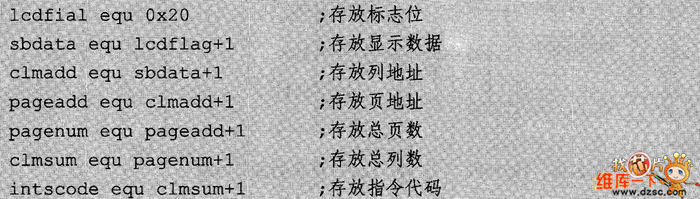 lcdfial equ 0x20 ;存放标志位
sbdata equ lcdflag+1 ;存放显示数据
clmadd equ sbdata+1 ;存放列地址
pageadd equ clmadd+1 ;存放页地址
pagenum equ pageadd+1 ;存放总页数
clmsum equ pagenum+1 ;存放总列数
intscode equ clmsum+1 ;存放指令代码
维库一下
www.dzsc.com